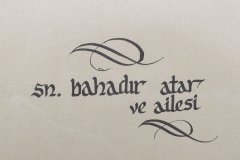 sn. bahadır atar
ve ailesi